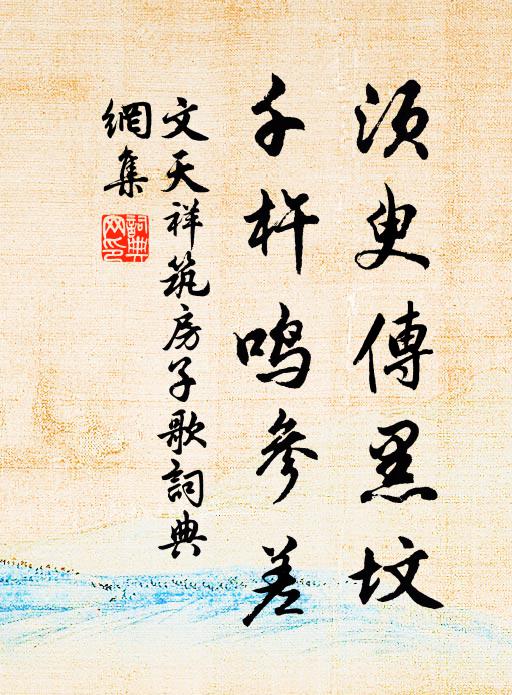 須臾傳黑墳
千杵鳴參差
文天祥筑房子歌詞典
網集
詞典網印